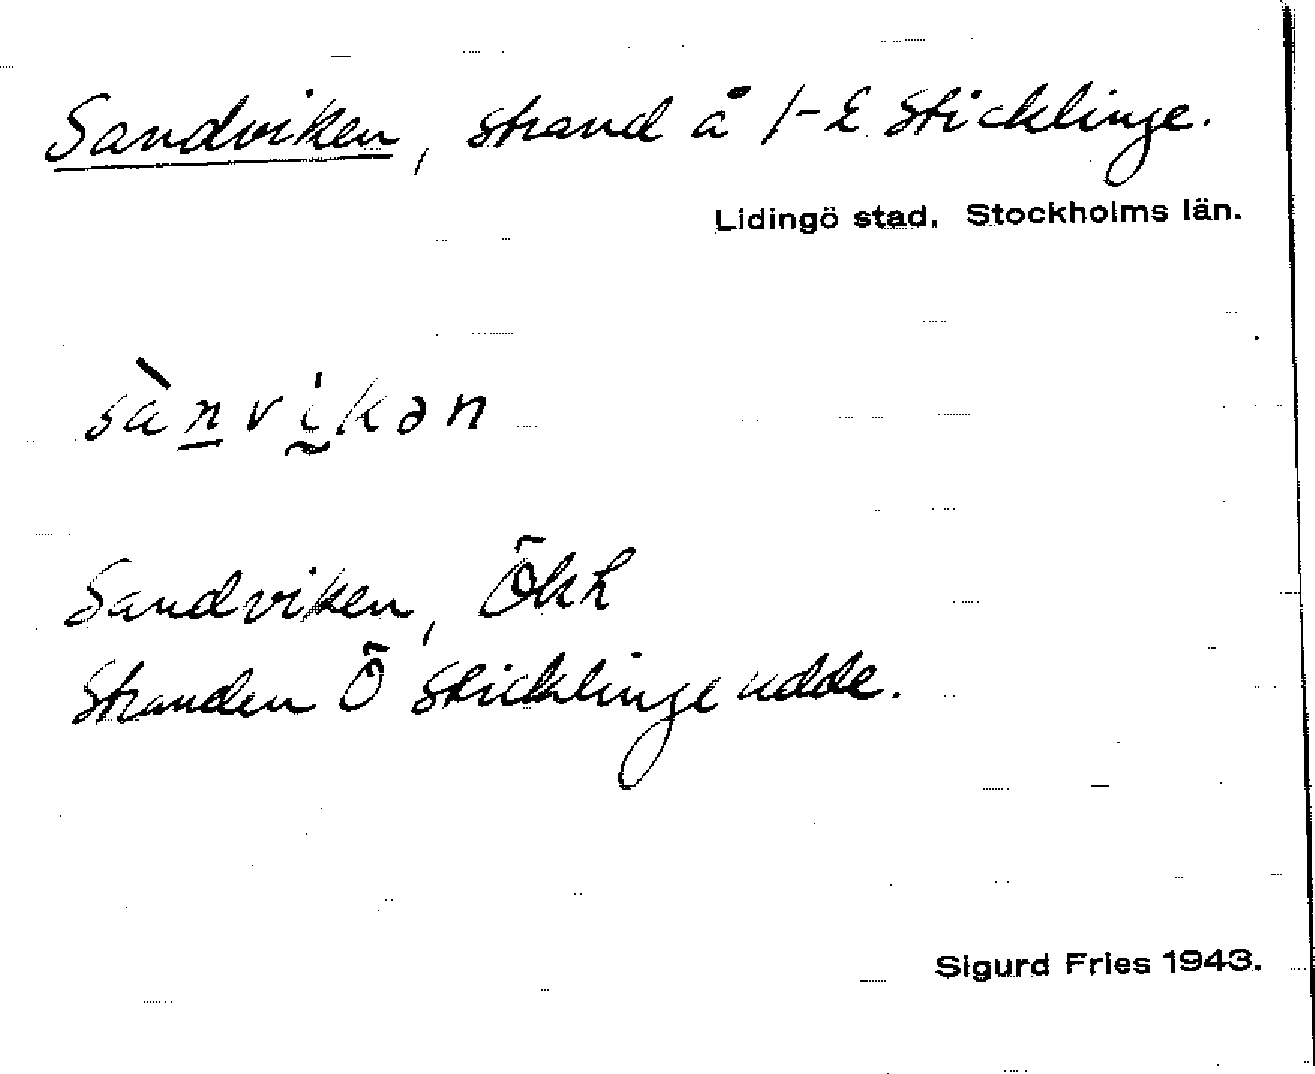 Sandviken, strand å 1-2 Sticklinge.
Lidingö stad, Stockholms län.
sànvikən
Sandviken, Ökk
Stranden Ö Sticklinge udde.
Sigurd Fries 1943.